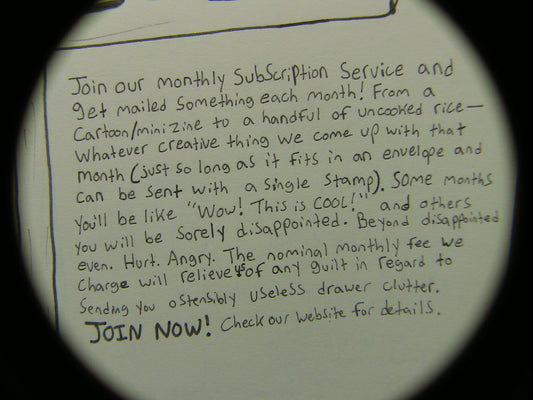 Join our monthly Subscription Service and
get mailed Something each month! From a
Cartoon/mini zine to a handful of uncooked rice—
Whatever creative thing we come up with that
month (just so long as it fits in an envelope and
can be sent with a single stamp). Some months
you'll be like "Wow! This is COOL!" and others
you will be sorely disappointed. Beyond disappointed
even. Hurt. Angry. The nominal monthly fee we
Charge will relieve us of any guilt in regard to
Sending you ostensibly useless drawer clutter.
JOIN NOW! Check our website for details.